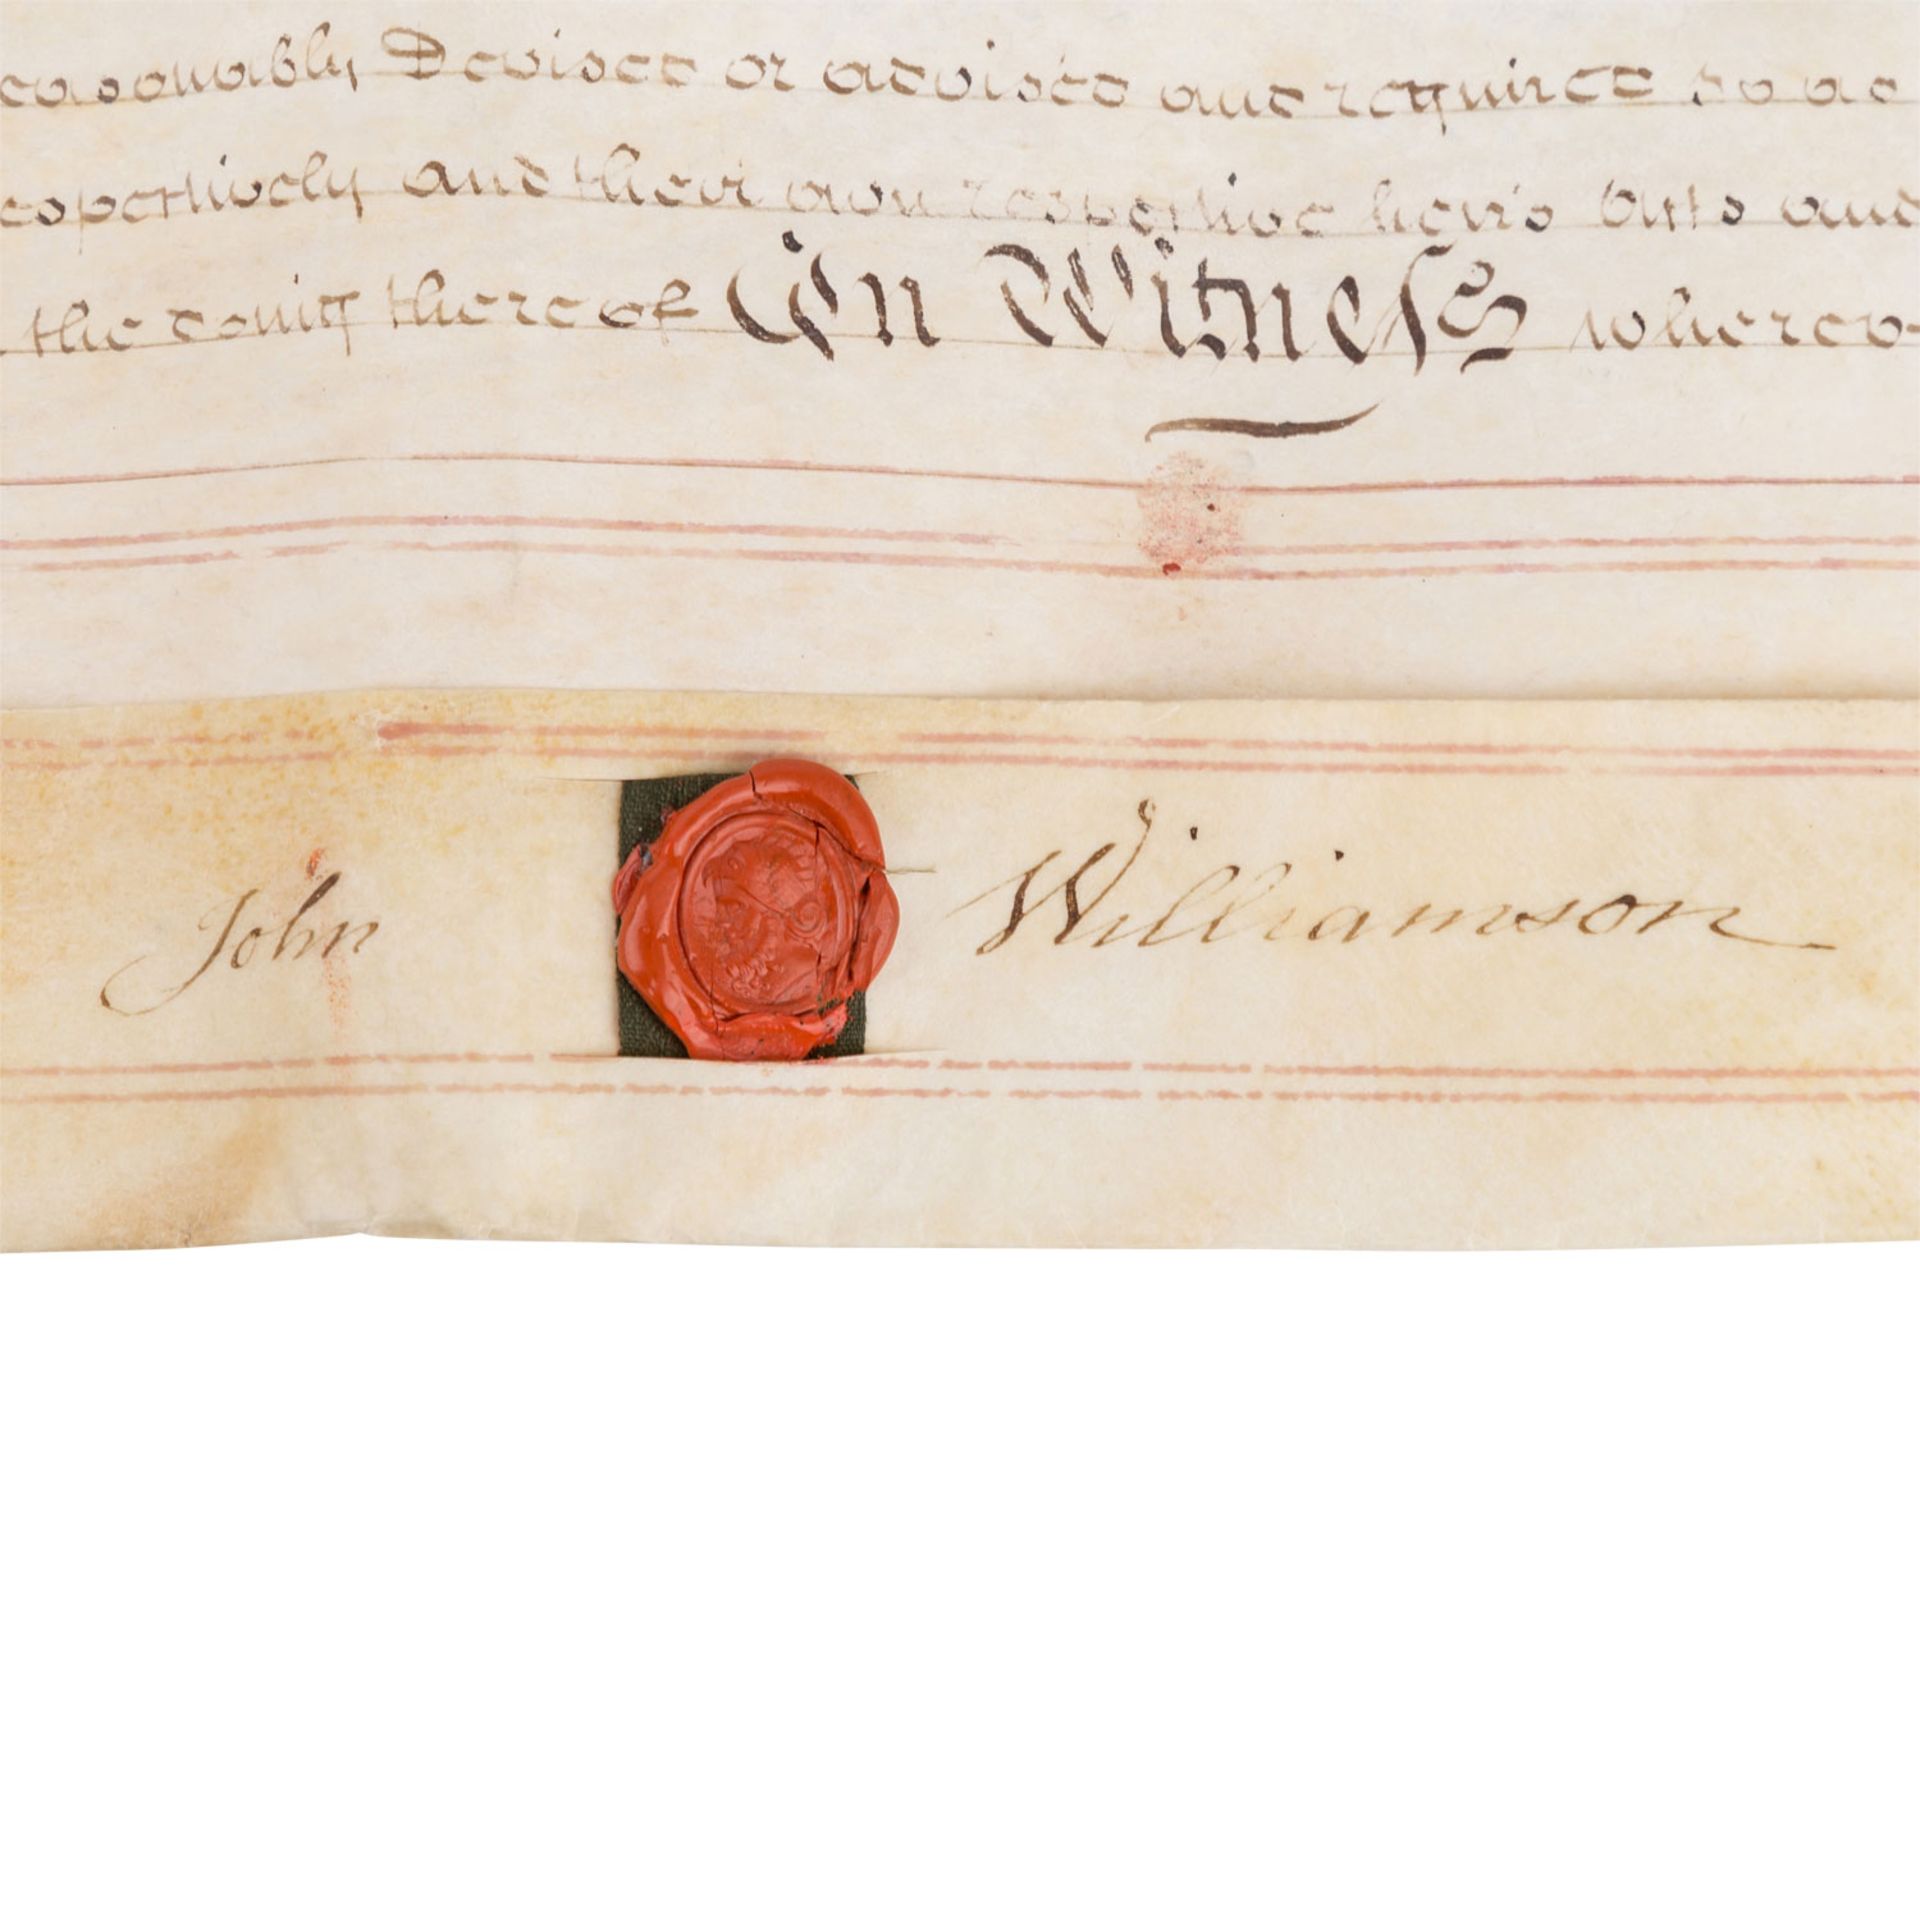 easonably Devised or advised and required so as
espectively and their own respective heirs Acts and
the doing thereof In Witness whereo
John Williamson